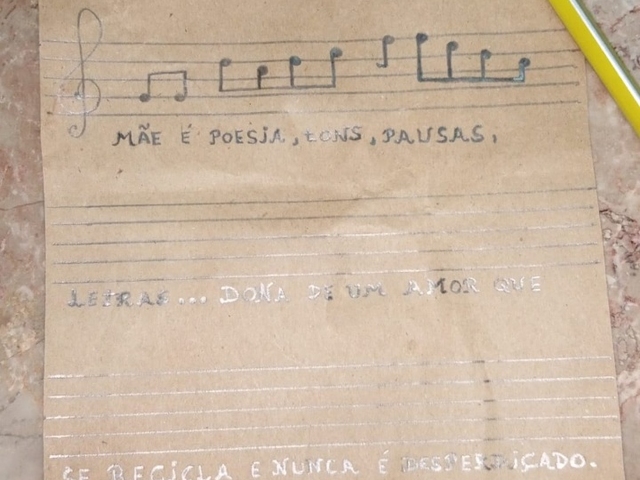 MÃE É POESIA, TONS, PAUSAS,
LETRAS... DONA DE UM AMOR QUE
SE RECICLA E NUNCA É DESPERDIÇADO.